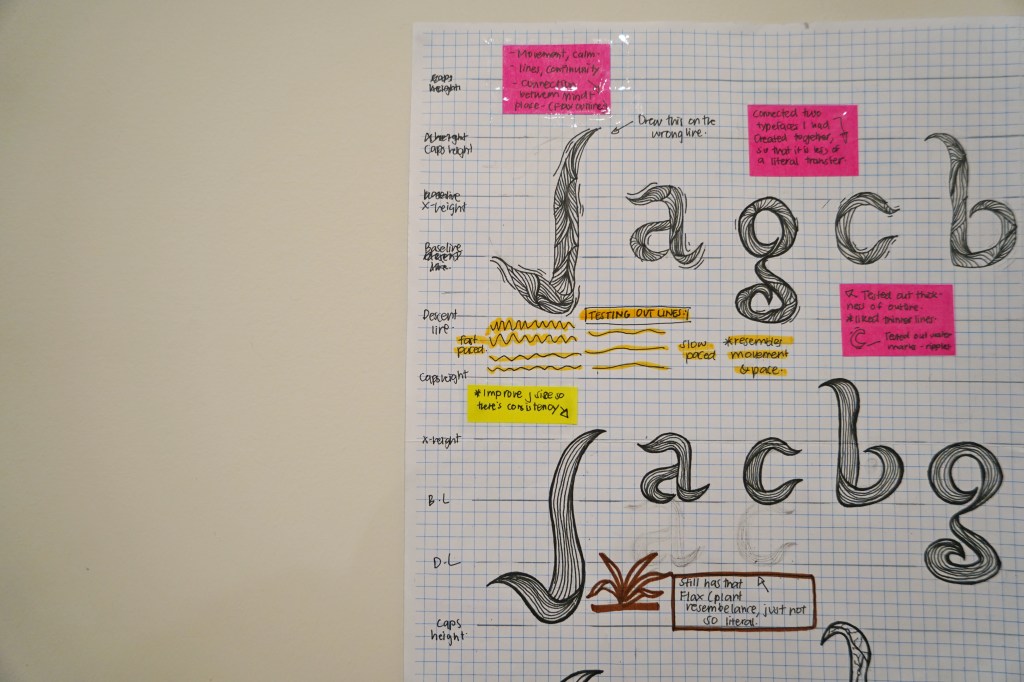 - Movement, calm
- lines, community
- connection
between mind +
place - (flax outlines
Caps
height
Drew this on the
wrong line.
Connected two
typefaces I had
created together,
so that it is less of
a literal transfer.
Caps height
j a g c b
X-height
Baseline
line.
Tested out thick-
ness of outline.
*liked thinner lines.
Tested out water
marks - ripples
Descent
line.
TESTING OUT LINES:
fast
paced.
slow
paced
*resembles
movement
& pace.
Caps height
*Improve j size so
there's consistency
X-height
j a c b g
B.L
a c
D.L
Still has that
Flax (plant
resemblance, just not
so literal.
Caps
height.